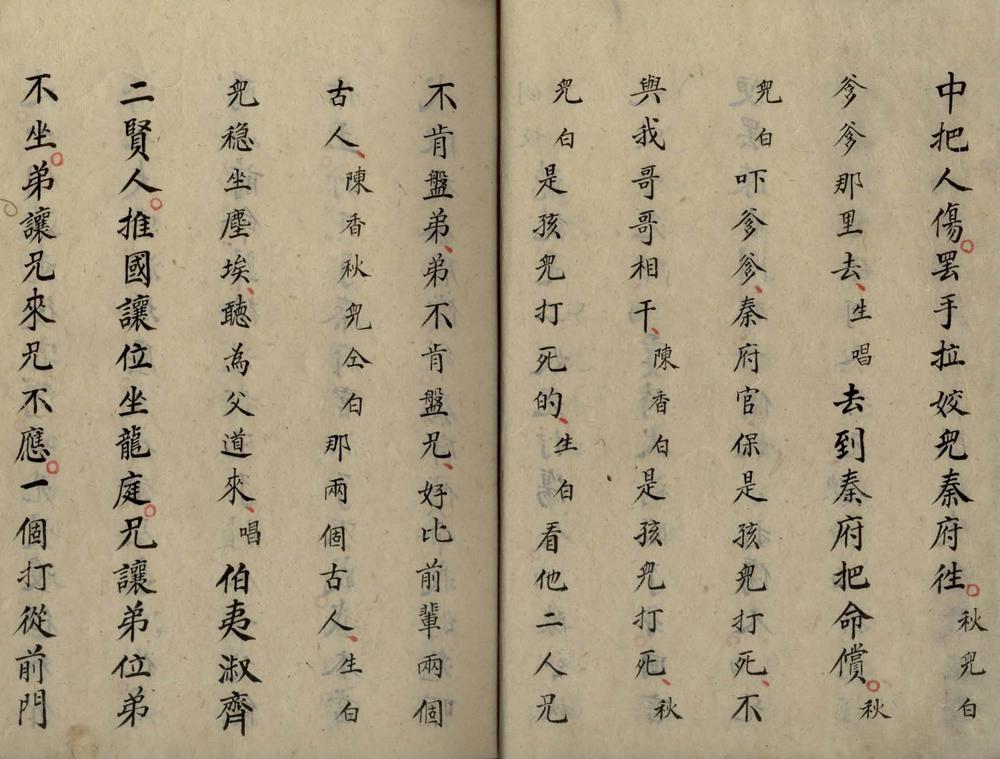 中把人傷。罢手拉姣児秦府徃。秋児白
爹爹那里去、生唱去到秦府把命償。秋
児白吓爹爹、秦府官保是孩児打死、不
與我哥哥相干、陳香白是孩児打死、秋
児白是孩児打死的、生白看他二人兄
不肯盤弟、弟不肯盤兄、好比前輩兩個
古人、陳香秋児仝白那兩個古人、生白
児稳坐塵埃、聽為父道來、唱伯夷淑齊
二賢人。推國讓位坐龍庭。兄讓弟位弟
不坐。弟讓兄來兄不應。一個打從前門